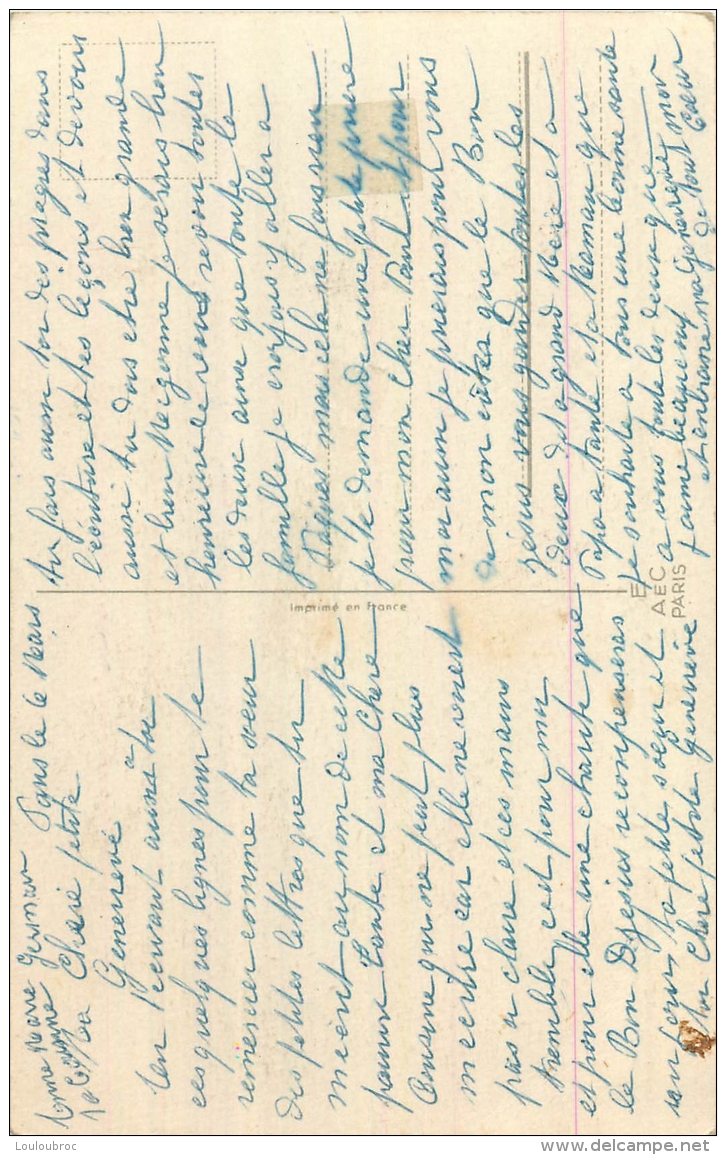 Paris le 6 Mars
Chère petite
Geneviève
En t'écrivant aussi à toi
ces quelques lignes pour te
remercier comme ta sœur
des petites lettres que tu
m'écrit au nom de cette
pauvre tante et ma chère
qui ne peut plus
m'écrire car elle ne vois
pas a claire et ces mains
tremble c'est pour moi
et pour elle une charité que
le Bon D Jesius recompenseras
ta petite sœur et
Chère petite Geneviève
tu fais aussi toi des progrès dans
l'écriture et tes leçons et devoirs
aussi tu dois être bien grande
et bien mignonne je serais bien
heureuse de vous revoir toutes
les deux ainsi que toute la
famille je croyais y aller a
Pâques mais cela ne fais rien
je te demande une petite prière
pour mon cher Paul et pour
moi aussi je prierais pour vous
de mon côtés que le Bon
Jésus vous gardes toutes les
deux et ta grand Mère et a
Papa a tante et a Maman que
je souhaite a tous une bonne santé
a vous toute les deux que
j'aime beaucoup
de tout Cœur
Imprimé en France
AEC
PARIS
Louloubroc
delcampe.net